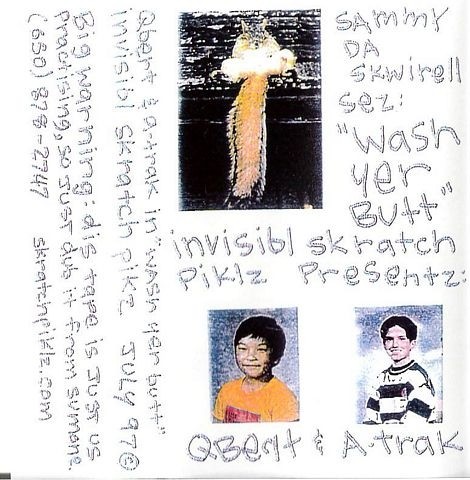 SAMMY
DA
SKWIRELL
SEZ:
"WASH
YER
BUTT"
invisibl skratch
PiKlz PresenTz:
QBert & A trak
Qbert & a-trak in "wash yer butt"
invisibl skratch piklz July 97 ©
Big warning: dis tape is just us
pravising, so just dub it from sumone.
(650) 878-2747 skratchpiklz.com